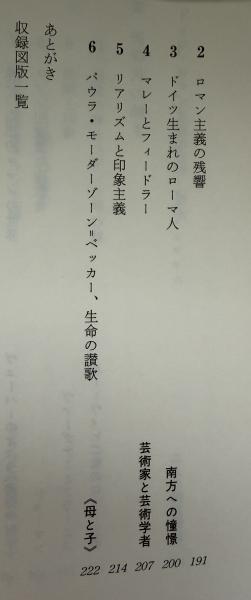 2 ロマン主義の残響 191
3 ドイツ生まれのローマ人 南方への憧憬 200
4 マレーとフィードラー 芸術家と芸術学者 207
5 リアリズムと印象主義 214
6 パウラ・モーダーゾーン=ベッカー、生命の讃歌 《母と子》 222
あとがき
収録図版一覧